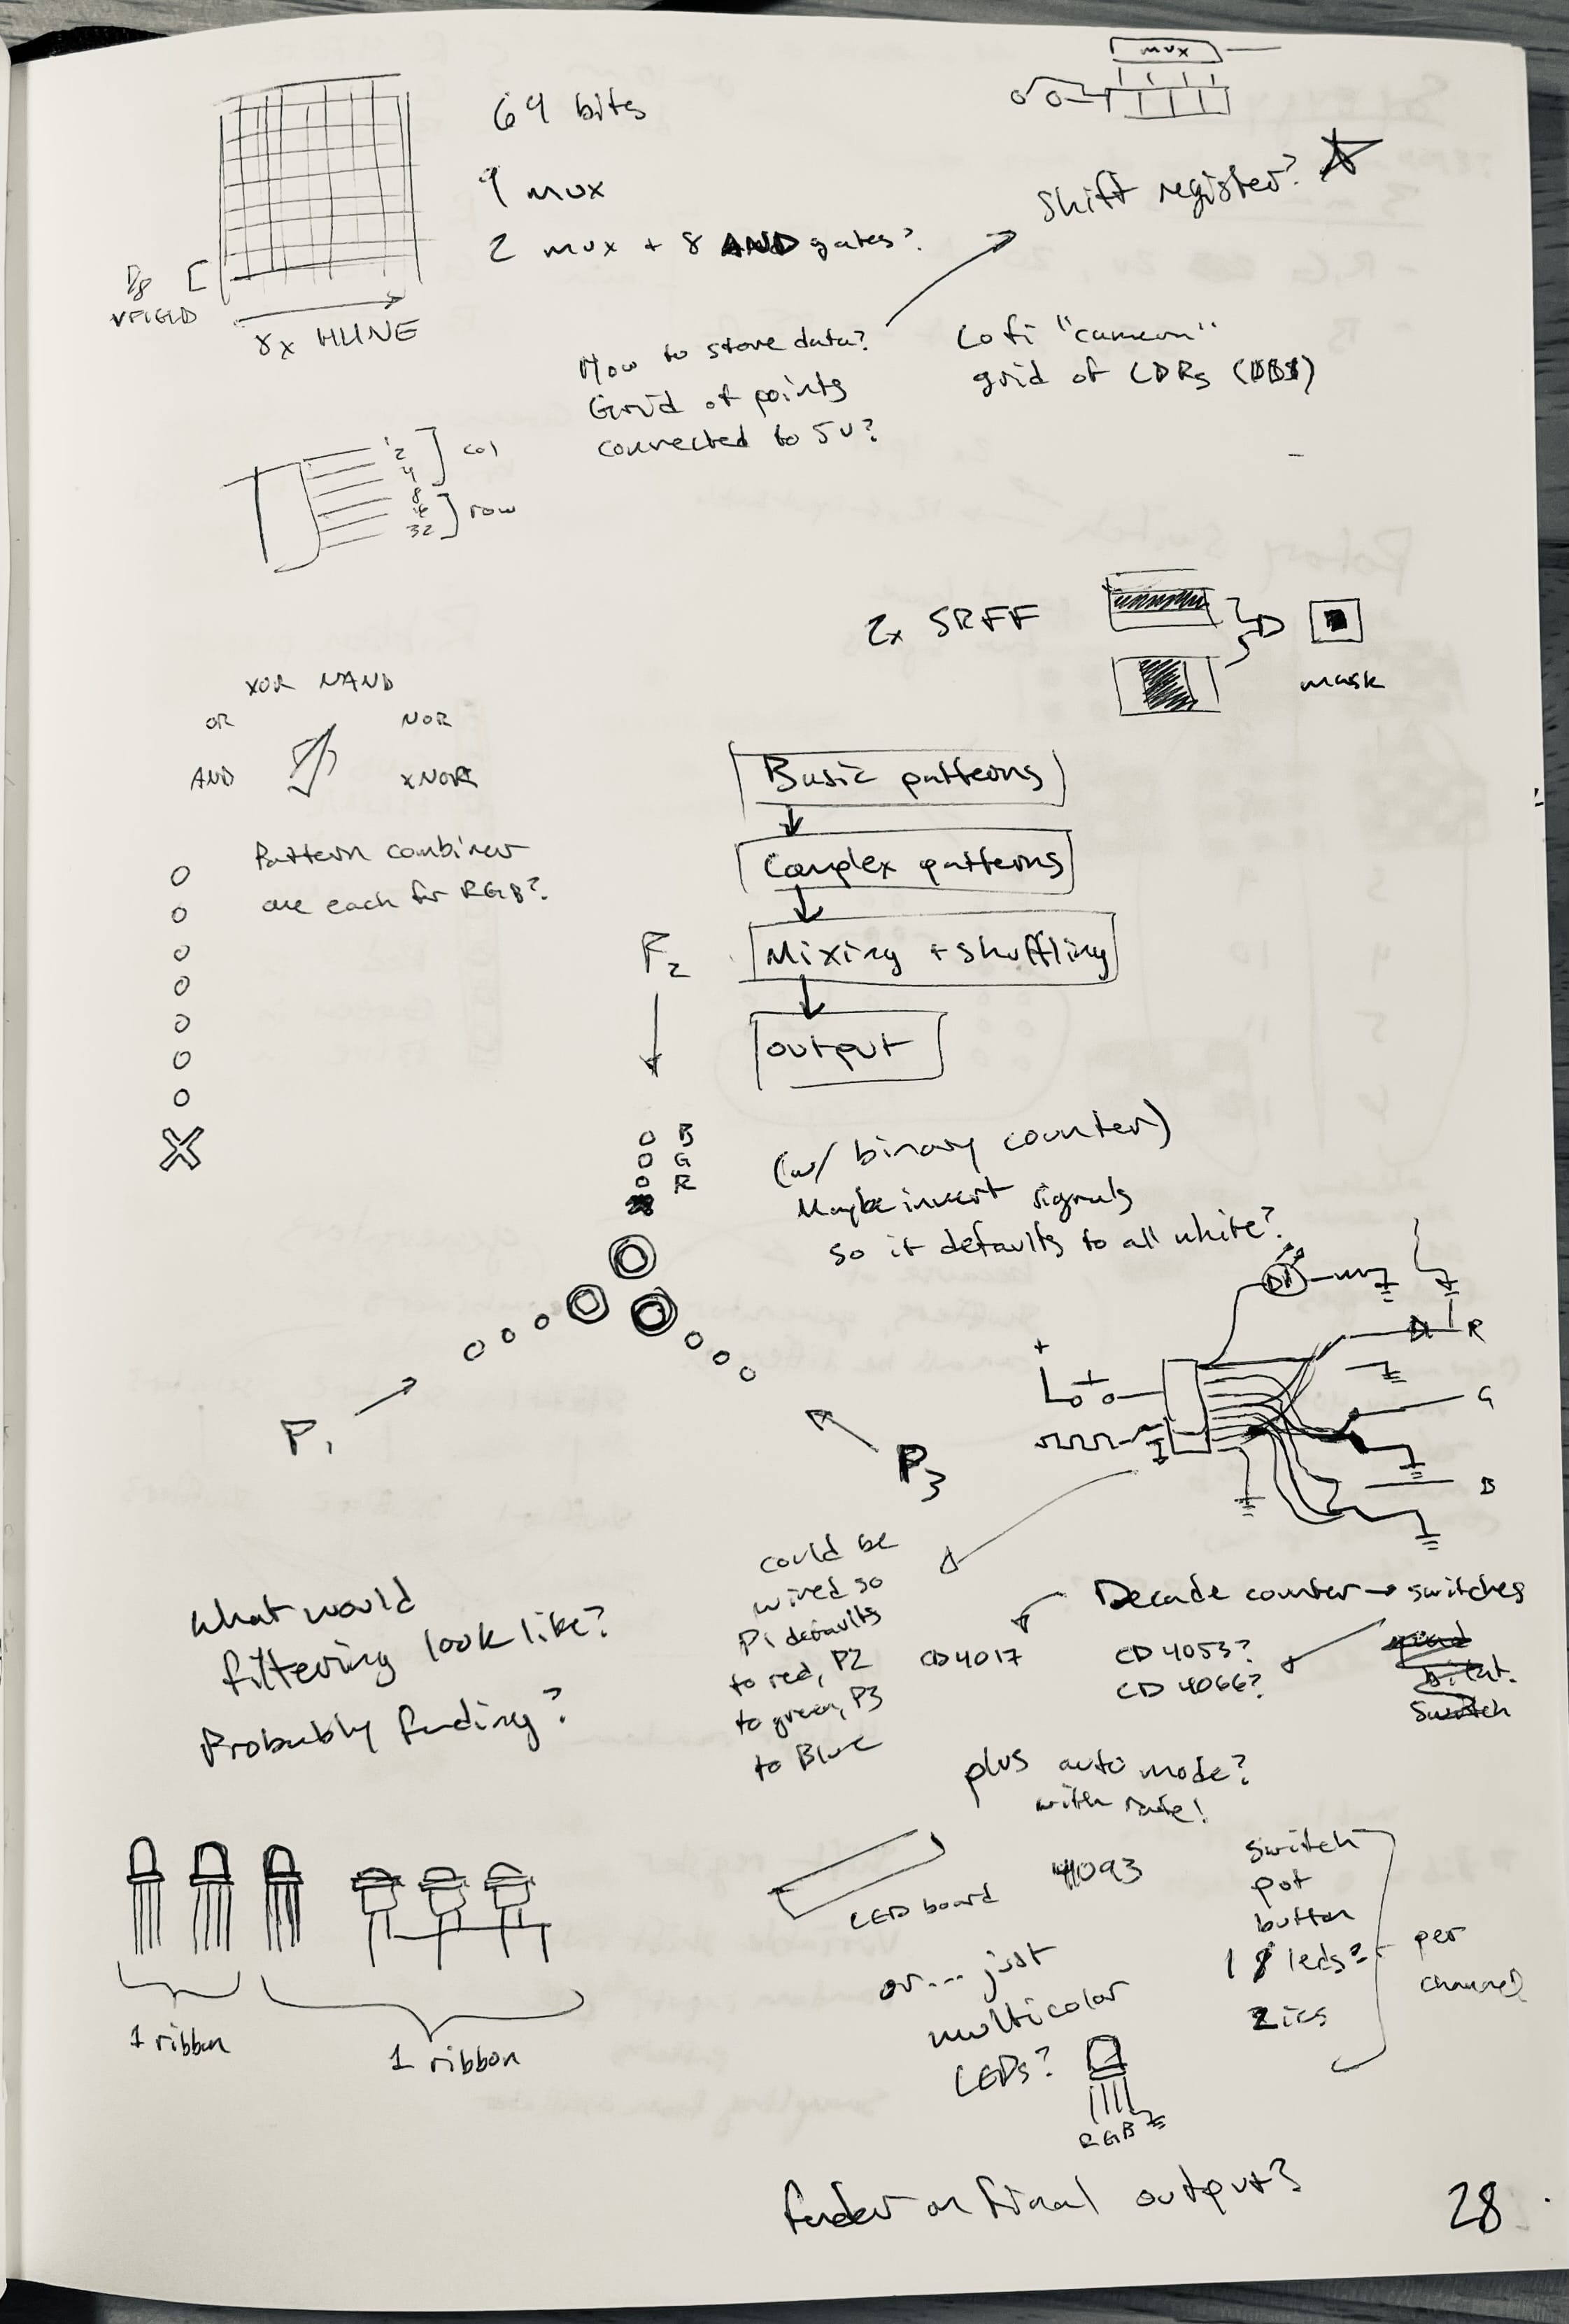 64 bits
9 mux
2 mux + 8 AND gates?
1/8
VFIELD
8x HLINE
mux
shift register?
How to store data?
Grid of points
connected to 5v?
Lofi "camera"
grid of LDRs
1
2
4
col
8
16
32
row
2x SRFF
mask
XOR NAND
OR NOR
AND XNOR
Pattern combiner
one each for RGB?
Basic patterns
Complex patterns
Mixing + shuffling
output
P2
B
G
R
(w/ binary counter)
Maybe invert signals
so it defaults to all white?
P1
P3
+
R
G
B
could be
wired so
P1 defaults
to red, P2
to green, P3
to Blue
Decade counter → switches
CD4017
CD4053?
CD4066?
What would
filtering look like?
Probably fading?
plus auto mode?
with rate!
LED board
4093
or... just
multicolor
LEDs?
RGB
switch
pot
button
18 leds?
2 ics
per
channel
1 ribbon
1 ribbon
fader on final output?
28